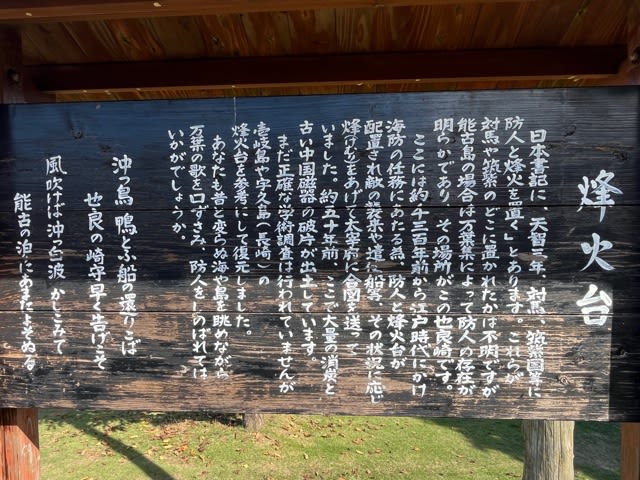 烽火台
日本書記に「天智三年、対馬、筑紫国等に
防人と烽火を置く」とあります。これらが
対馬や筑紫のどこに置かれたかは不明ですが
能古島の場合は万葉集によって防人の存在が
明らかであり、その場所がこの也良崎です。
ここには約千三百年前から江戸時代にかけ
海防の任務にあたる為、防人と烽火台が
配置され敵の襲来や遣従船等、その状況に応じ
烽(のろし)をあげて太宰府に合図を送って
いました。約五十年前、ここで大量の消炭と
古い中国磁器の破片が出土しています。
まだ正確な学術調査は行われていませんが
壱岐島や宇久島(長崎)の
烽火台を参考にして復元しました。
あなたも昔と変らぬ海や島を眺めながら
万葉の歌を口ずさみ、防人をしのばれては
いかがでしょうか。
沖つ鳥 鴨とふ船の還りこば
也良の崎守早く告げこそ
風吹けば沖つ白波 かしこみて
能古の泊にあまたよぞぬる